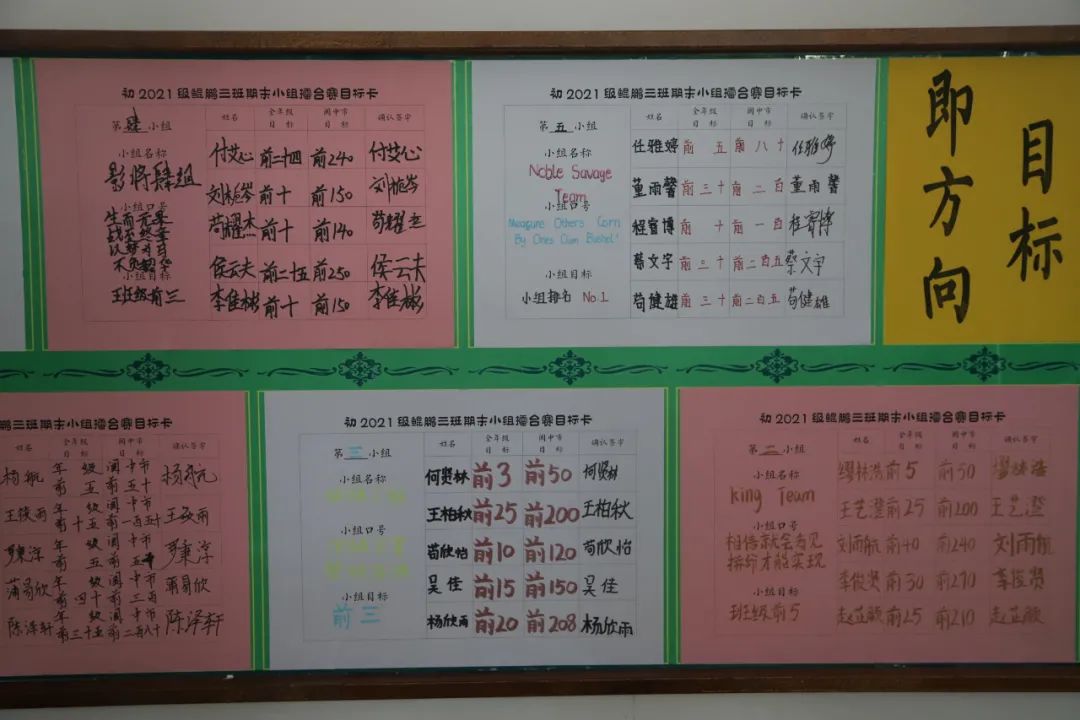 初2021级鲲鹏三班期末小组擂台赛目标卡
第肆小组 姓名 全年级目标 阆中市目标 确认签字
小组名称
影将肆组
小组口号
生而无畏
战至终章
小组目标
班级前三
付艾心 前二十四 前240 付艾心
刘栀岑 前十 前150 刘栀岑
苟耀杰 前十 前140 苟耀杰
侯云夫 前二十五 前250 侯云夫
李佳彬 前十 前150 李佳彬
初2021级鲲鹏三班期末小组擂台赛目标卡
第五小组 姓名 全年级目标 阆中市目标 确认签字
小组名称
Noble Savage
Team
小组口号
Measure Others Corn
By Ones Own Bushel!
小组目标
小组排名 No.1
任雅婷 前五 前八十 任雅婷
董雨馨 前三十 前二百 董雨馨
程睿博 前十 前一百 程睿博
蔡文宇 前三十 前二百五 蔡文宇
苟健雄 前三十 前二百五 苟健雄
目标
即方向
鹏三班期末小组擂台赛目标卡
姓名 全年级目标 阆中市目标 确认签字
杨航 年级前五 阆中市前五十
王筱雨 年级前十五 阆中市前一百五十
年级前五 阆中市前五十
蒲易欣 年级前四十 阆中市前三百 蒲易欣
陈泽轩 年级前三十五 阆中市前二百八十 陈泽轩
初2021级鲲鹏三班期末小组擂台赛目标卡
第三小组 姓名 全年级目标 阆中市目标 确认签字
小组名称
小组口号
小组目标
前三
何贤林 前3 前50 何贤林
王柏秋 前25 前200 王柏秋
苟欣怡 前10 前120 苟欣怡
吴佳 前15 前150 吴佳
杨欣雨 前20 前208 杨欣雨
初2021级鲲鹏三班期末小组擂台赛目标卡
第二小组 姓名 全年级目标 阆中市目标 确认签字
小组名称
King Team
小组口号
相信就会看见
拼命才能实现
小组目标
班级前5
缪林浩 前5 前50 缪林浩
王艺澄 前25 前200 王艺澄
刘雨航 前40 前240 刘雨航
李俊贤 前30 前270 李俊贤
赵芷颐 前25 前210 赵芷颐